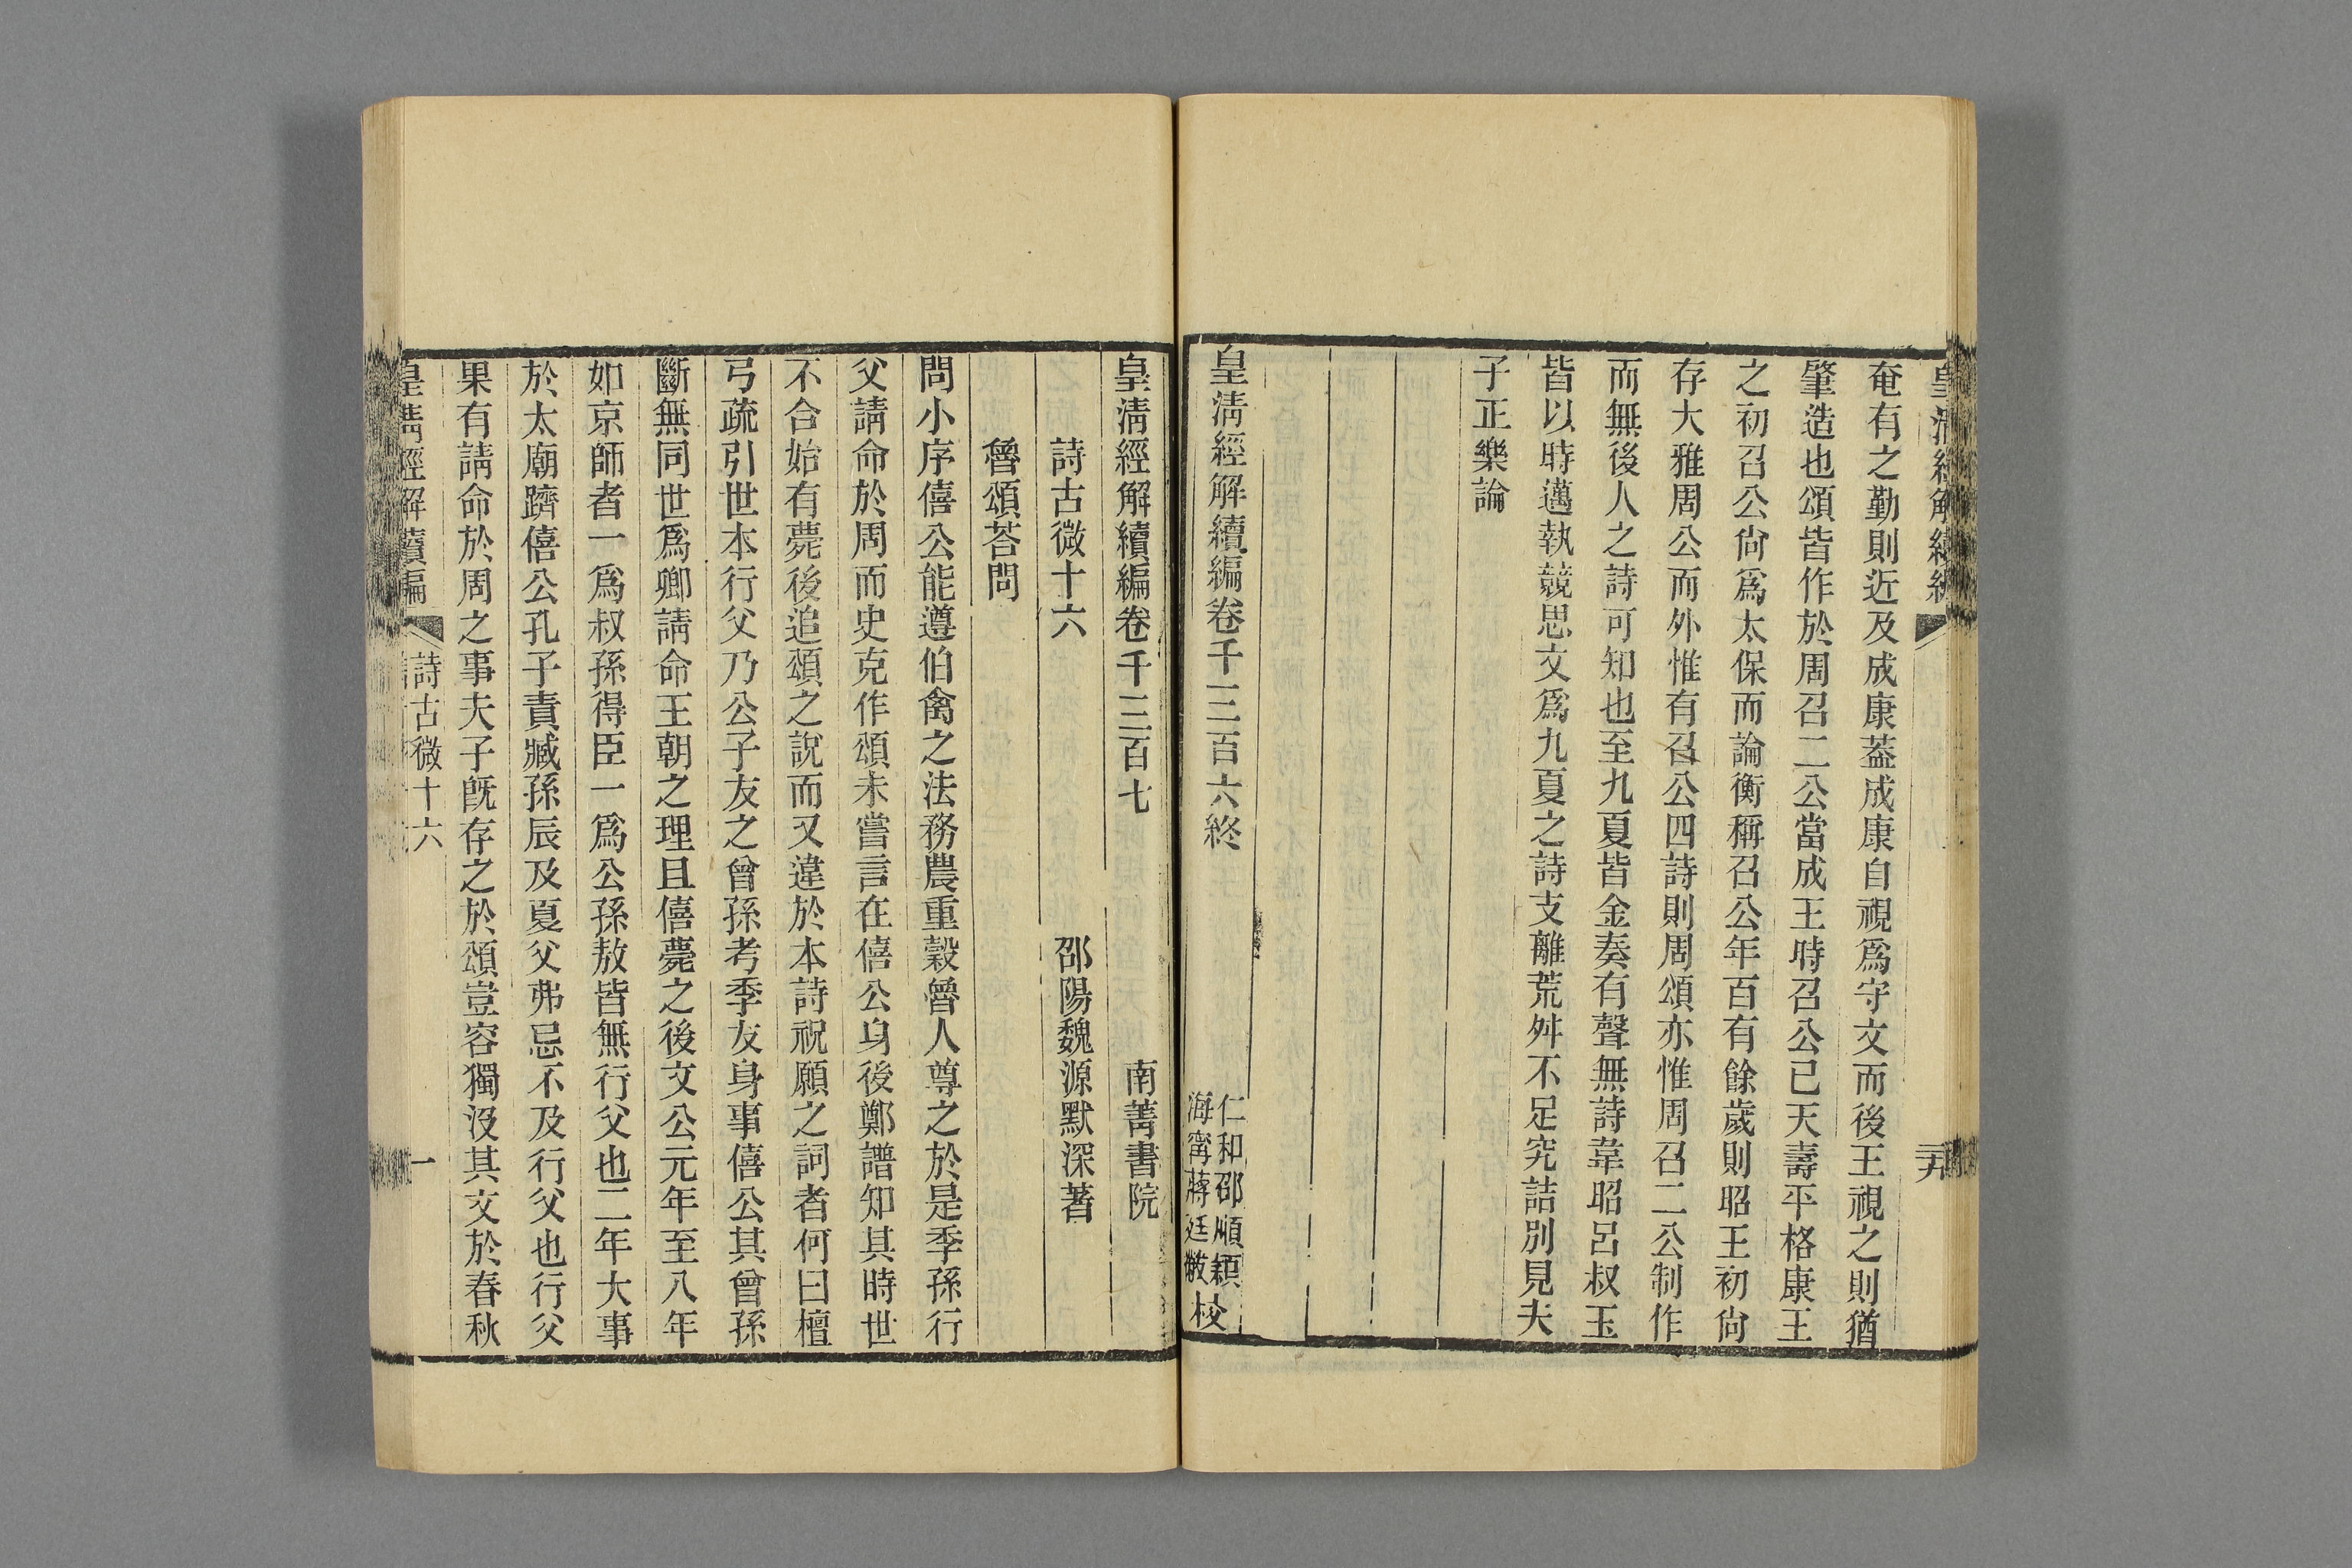 皇清經解續編
 奄有之勤則近及成康葢成康自視爲守文而後王視之則猶
肇造也頌皆作於周召二公當成王時召公已天壽平格康王
之初召公尙爲太保而論衡稱召公年百有餘歲則昭王初尙
存大雅周公而外惟有召公四詩則周頌亦惟周召二公制作
而無後人之詩可知也至九夏皆金奏有聲無詩韋昭呂叔玉
皆以時邁執競思文爲九夏之詩支離荒舛不足究詰別見夫
子正樂論
皇淸經解續編卷千三百六終
仁和邵順穎
海甯蔣廷黻校
皇淸經解續編卷千三百七
南菁書院
詩古微十六
邵陽魏源默深著
魯頌荅問
問小序僖公能遵伯禽之法務農重穀魯人尊之於是季孫行
父請命於周而史克作頌未嘗言在僖公身後鄭譜知其時世
不合始有薨後追頌之說而又違於本詩祝願之詞者何曰檀
弓疏引世本行父乃公子友之曾孫考季友身事僖公其曾孫
斷無同世爲卿請命王朝之理且僖薨之後文公元年至八年
如京師者一爲叔孫得臣一爲公孫敖皆無行父也二年大事
於太廟躋僖公孔子責臧孫辰及夏父弗忌不及行父也行父
果有請命於周之事夫子旣存之於頌豈容獨沒其文於春秋
皇淸經解續編
詩古微十六
一